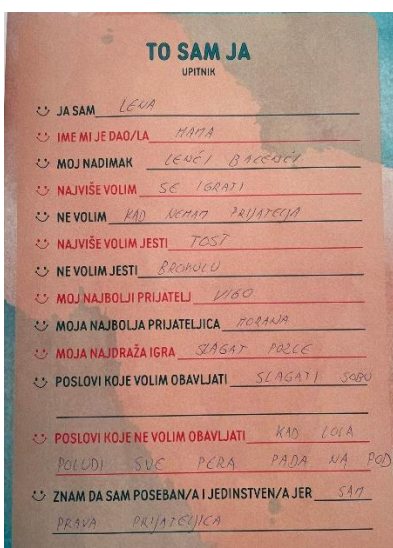 TO SAM JA
UPITNIK
JA SAM LENA
IME MI JE DAO/LA MAMA
MOJ NADIMAK LENČI BALENČI
NAJVIŠE VOLIM SE IGRATI
NE VOLIM KAD NEMAM PRIJATELJA
NAJVIŠE VOLIM JESTI TOST
NE VOLIM JESTI BROKULU
MOJ NAJBOLJI PRIJATELJ VIGO
MOJA NAJBOLJA PRIJATELJICA MORANA
MOJA NAJDRAŽA IGRA SLAGAT PUZLE
POSLOVI KOJE VOLIM OBAVLJATI SLAGATI SOBU
POSLOVI KOJE NE VOLIM OBAVLJATI KAD LOLA
POLUDI SVE PERA PADA NA POD
ZNAM DA SAM POSEBAN/A I JEDINSTVEN/A JER SAM
PRAVA PRIJATELJICA